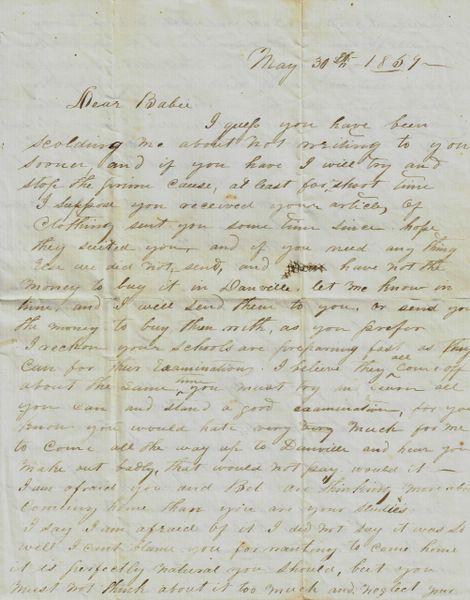 May 30th 1869
Dear Babie
I guess you have been
scolding me about not writing to you
sooner, and if you have I will try and
stop the prime cause, at least for short time
I suppose you received your articles of
clothing sent you some time since hope
they suited you, and if you need any thing
else we did not, send, and have not the
money to buy it in Danville let me know in
time, and I will send them to you, or send you
the money to buy them with, as you prefer
I reckon your schools are preparing fast as they
can for their Examinations. I believe they all come off
about the same time you must try and learn all
you can and stand a good examination, for you
know you would hate very very much for me
to come all the way up to Danville and hear you
make out badly, that would not pay would it —
I am afraid you and Bob are thinking more about
coming home than you are your studies.
I say I am afraid of it I did not say it was so
well I cant blame you for wanting to come home
it is perfectly natural you should, but you
must not think about it too much and neglect your